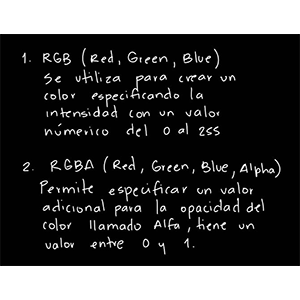 1. RGB (Red, Green, Blue)
Se utiliza para crear un
color especificando la
intensidad con un valor
númerico del 0 al 255
2. RGBA (Red, Green, Blue, Alpha)
Permite especificar un valor
adicional para la opacidad del
color llamado Alfa, tiene un
valor entre 0 y 1.